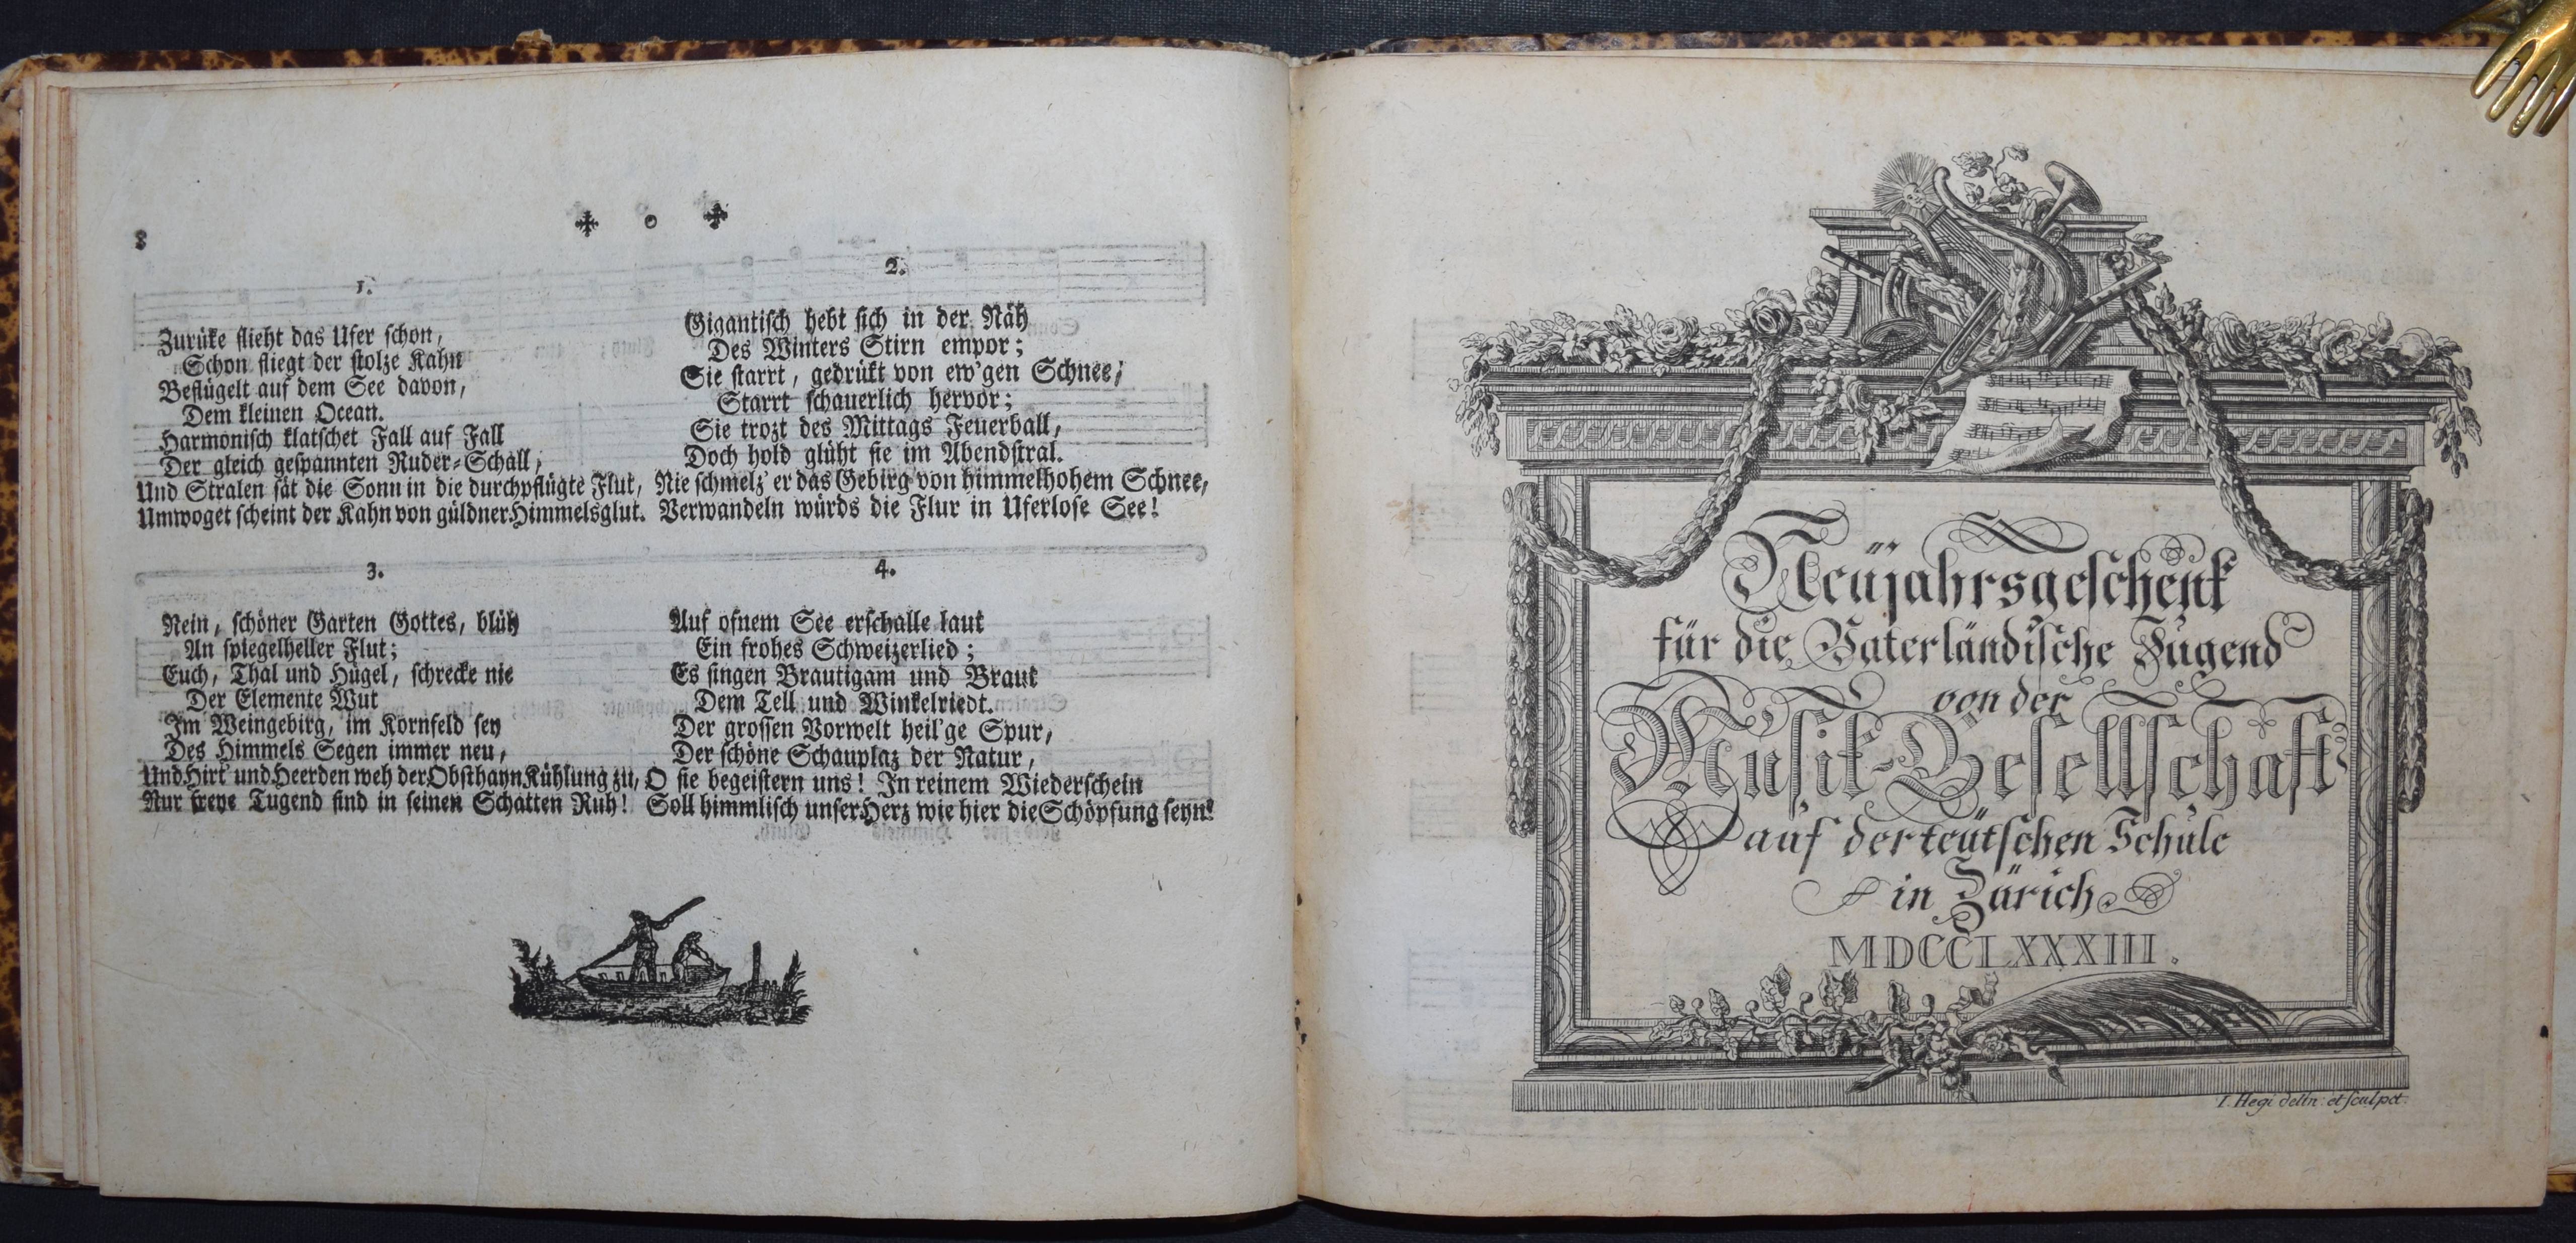 8
1.
Zurüke flieht das Ufer schon,
Schon fliegt der stolze Kahn
Beflügelt auf dem See davon,
Dem kleinen Ocean.
Harmonisch klatschet Fall auf Fall
Der gleich gespannten Ruder-Schall;
Und Stralen sät die Sonn in die durchpflügte Flut,
Umwoget scheint der Kahn von güldner Himmelsglut.
2.
Gigantisch hebt sich in der Näh
Des Winters Stirn empor;
Sie starrt, gedrükt von ew'gen Schnee,
Starrt schauerlich hervor;
Sie trozt des Mittags Feuerball,
Doch hold glüht sie im Abendstral.
Nie schmelz' er das Gebirg von himmelhohem Schnee,
Verwandeln würds die Flur in Uferlose See!
3.
Nein, schöner Garten Gottes, blüh
An spiegelheller Flut;
Euch, Thal und Hügel, schrecke nie
Der Elemente Wut
Im Weingebirg, im Kornfeld sey
Des Himmels Segen immer neu,
Und Hirt und Heerden weh der Obsthayn Kühlung zu,
Nur freye Tugend find in seinen Schatten Ruh!
4.
Auf ofnem See erschalle laut
Ein frohes Schweizerlied;
Es singen Brautigam und Braut
Dem Tell und Winkelriedt.
Der grossen Vorwelt heil'ge Spur,
Der schöne Schauplaz der Natur,
O sie begeistern uns! In reinem Wiederschein
Soll himmlisch unser Herz wie hier die Schöpfung seyn!
Neüjahrsgeschenk
für die Vaterländische Jugend
von der
Musik-Gesellschaft
auf der teütschen Schule
in Zürich
MDCCLXXXIII.
I. Hegi delin: et sculpst.